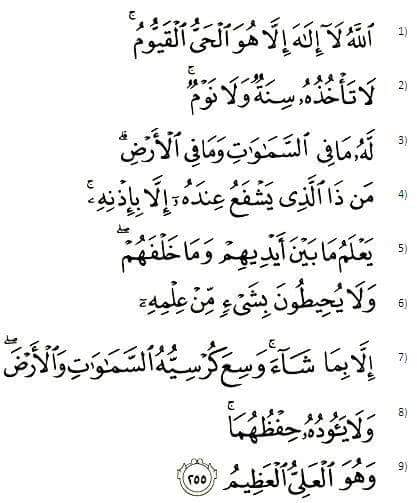 1) ٱللَّهُ لَآ إِلَٰهَ إِلَّا هُوَ ٱلْحَىُّ ٱلْقَيُّومُ ۚ
2) لَا تَأْخُذُهُۥ سِنَةٌ وَلَا نَوْمٌ ۚ
3) لَّهُۥ مَا فِى ٱلسَّمَٰوَٰتِ وَمَا فِى ٱلْأَرْضِ ۗ
4) مَن ذَا ٱلَّذِى يَشْفَعُ عِندَهُۥٓ إِلَّا بِإِذْنِهِۦ ۚ
5) يَعْلَمُ مَا بَيْنَ أَيْدِيهِمْ وَمَا خَلْفَهُمْ ۖ
6) وَلَا يُحِيطُونَ بِشَىْءٍ مِّنْ عِلْمِهِۦٓ
7) إِلَّا بِمَا شَآءَ ۚ وَسِعَ كُرْسِيُّهُ ٱلسَّمَٰوَٰتِ وَٱلْأَرْضَ ۖ
8) وَلَا يَـُٔودُهُۥ حِفْظُهُمَا ۚ
9) وَهُوَ ٱلْعَلِىُّ ٱلْعَظِيمُ ٢٥٥